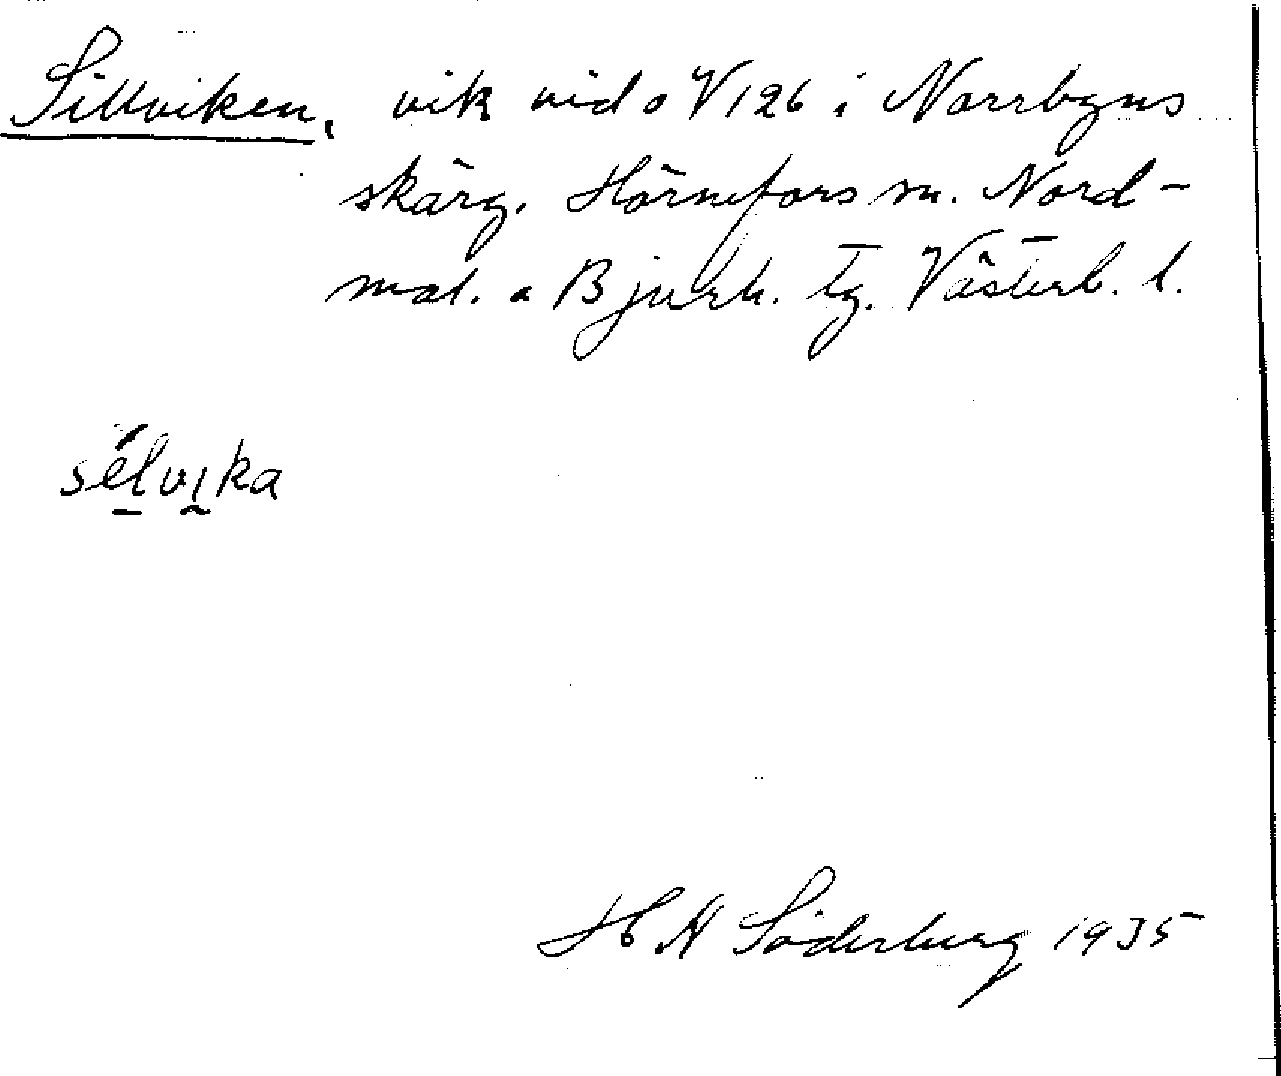 Sillviken, vik vid o V 126 i Norrbyns
skärg. Hörnefors sn. Nord-
mal. o Bjurh. tg. Västerb. l.
sélvika
H H Söderberg 1935